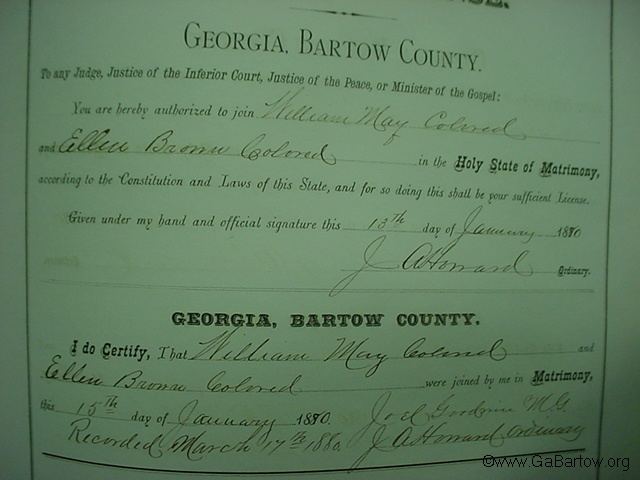 GEORGIA, BARTOW COUNTY.
To any Judge, Justice of the Inferior Court, Justice of the Peace, or Minister of the Gospel:
You are hereby authorized to join William May Colored
and Ellen Brown Colored in the Holy State of Matrimony,
according to the Constitution and Laws of this State, and for so doing this shall be your sufficient License.
Given under my hand and official signature this 13th day of January 1880
J A Howard Ordinary.
GEORGIA, BARTOW COUNTY.
I do Certify, That William May Colored and
Ellen Brown Colored were joined by me in Matrimony,
this 15th day of January 1880. Joel Goodwin M.G.
Recorded March 17th 1880. J A Howard Ordinary
©www.GaBartow.org